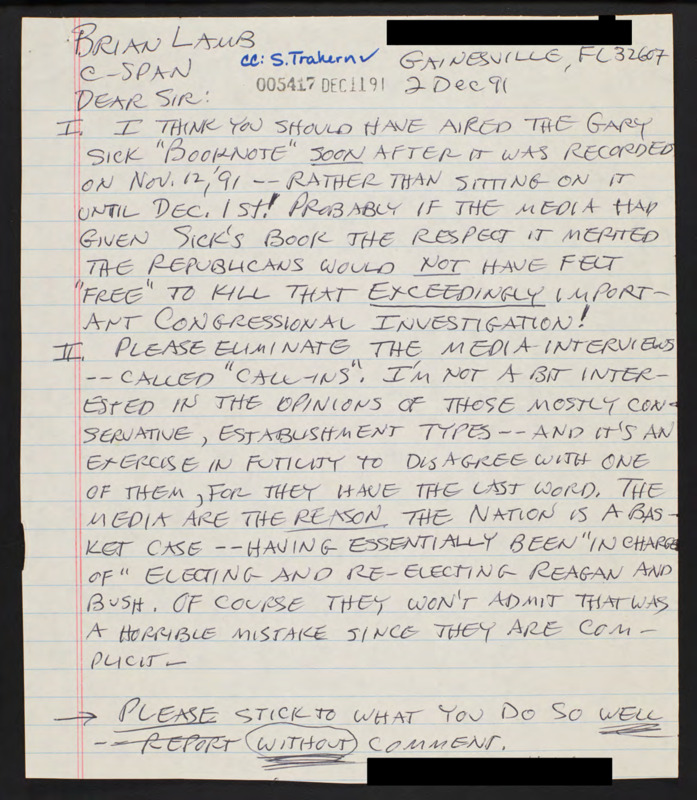 BRIAN LAMB
C-SPAN
cc: S. Trahern ✓
GAINESVILLE, FL 32607
005417 DEC 11 91
2 DEC 91
DEAR SIR:
I. I THINK YOU SHOULD HAVE AIRED THE GARY
SICK "BOOKNOTE" SOON AFTER IT WAS RECORDED
ON NOV. 12,'91 -- RATHER THAN SITTING ON IT
UNTIL DEC. 1ST! PROBABLY IF THE MEDIA HAD
GIVEN SICK'S BOOK THE RESPECT IT MERITED
THE REPUBLICANS WOULD NOT HAVE FELT
"FREE" TO KILL THAT EXCEEDINGLY IMPORT-
ANT CONGRESSIONAL INVESTIGATION!
II. PLEASE ELIMINATE THE MEDIA INTERVIEWS
-- CALLED "CALL-INS". I'M NOT A BIT INTER-
ESTED IN THE OPINIONS OF THOSE MOSTLY CON-
SERVATIVE, ESTABLISHMENT TYPES -- AND IT'S AN
EXERCISE IN FUTILITY TO DISAGREE WITH ONE
OF THEM, FOR THEY HAVE THE LAST WORD. THE
MEDIA ARE THE REASON THE NATION IS A BAS-
KET CASE -- HAVING ESSENTIALLY BEEN "IN CHARGE
OF" ELECTING AND RE-ELECTING REAGAN AND
BUSH. OF COURSE THEY WON'T ADMIT THAT WAS
A HORRIBLE MISTAKE SINCE THEY ARE COM-
PLICIT -
→ PLEASE STICK TO WHAT YOU DO SO WELL
-- REPORT WITHOUT COMMENT.